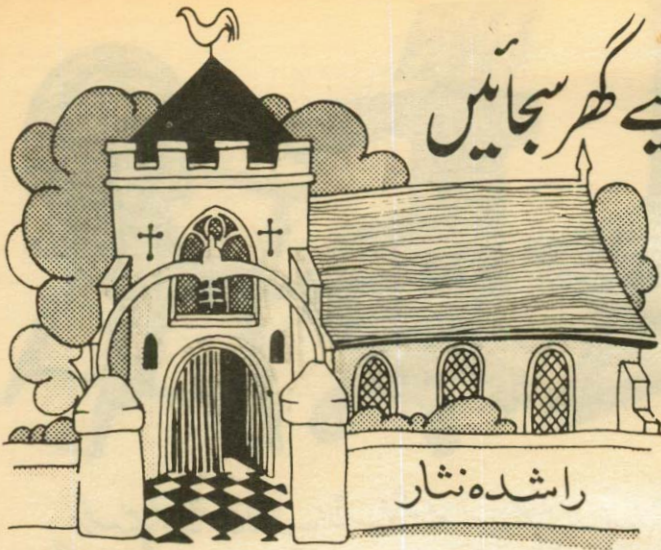 یے گھر سجائیں
راشدہ نثار